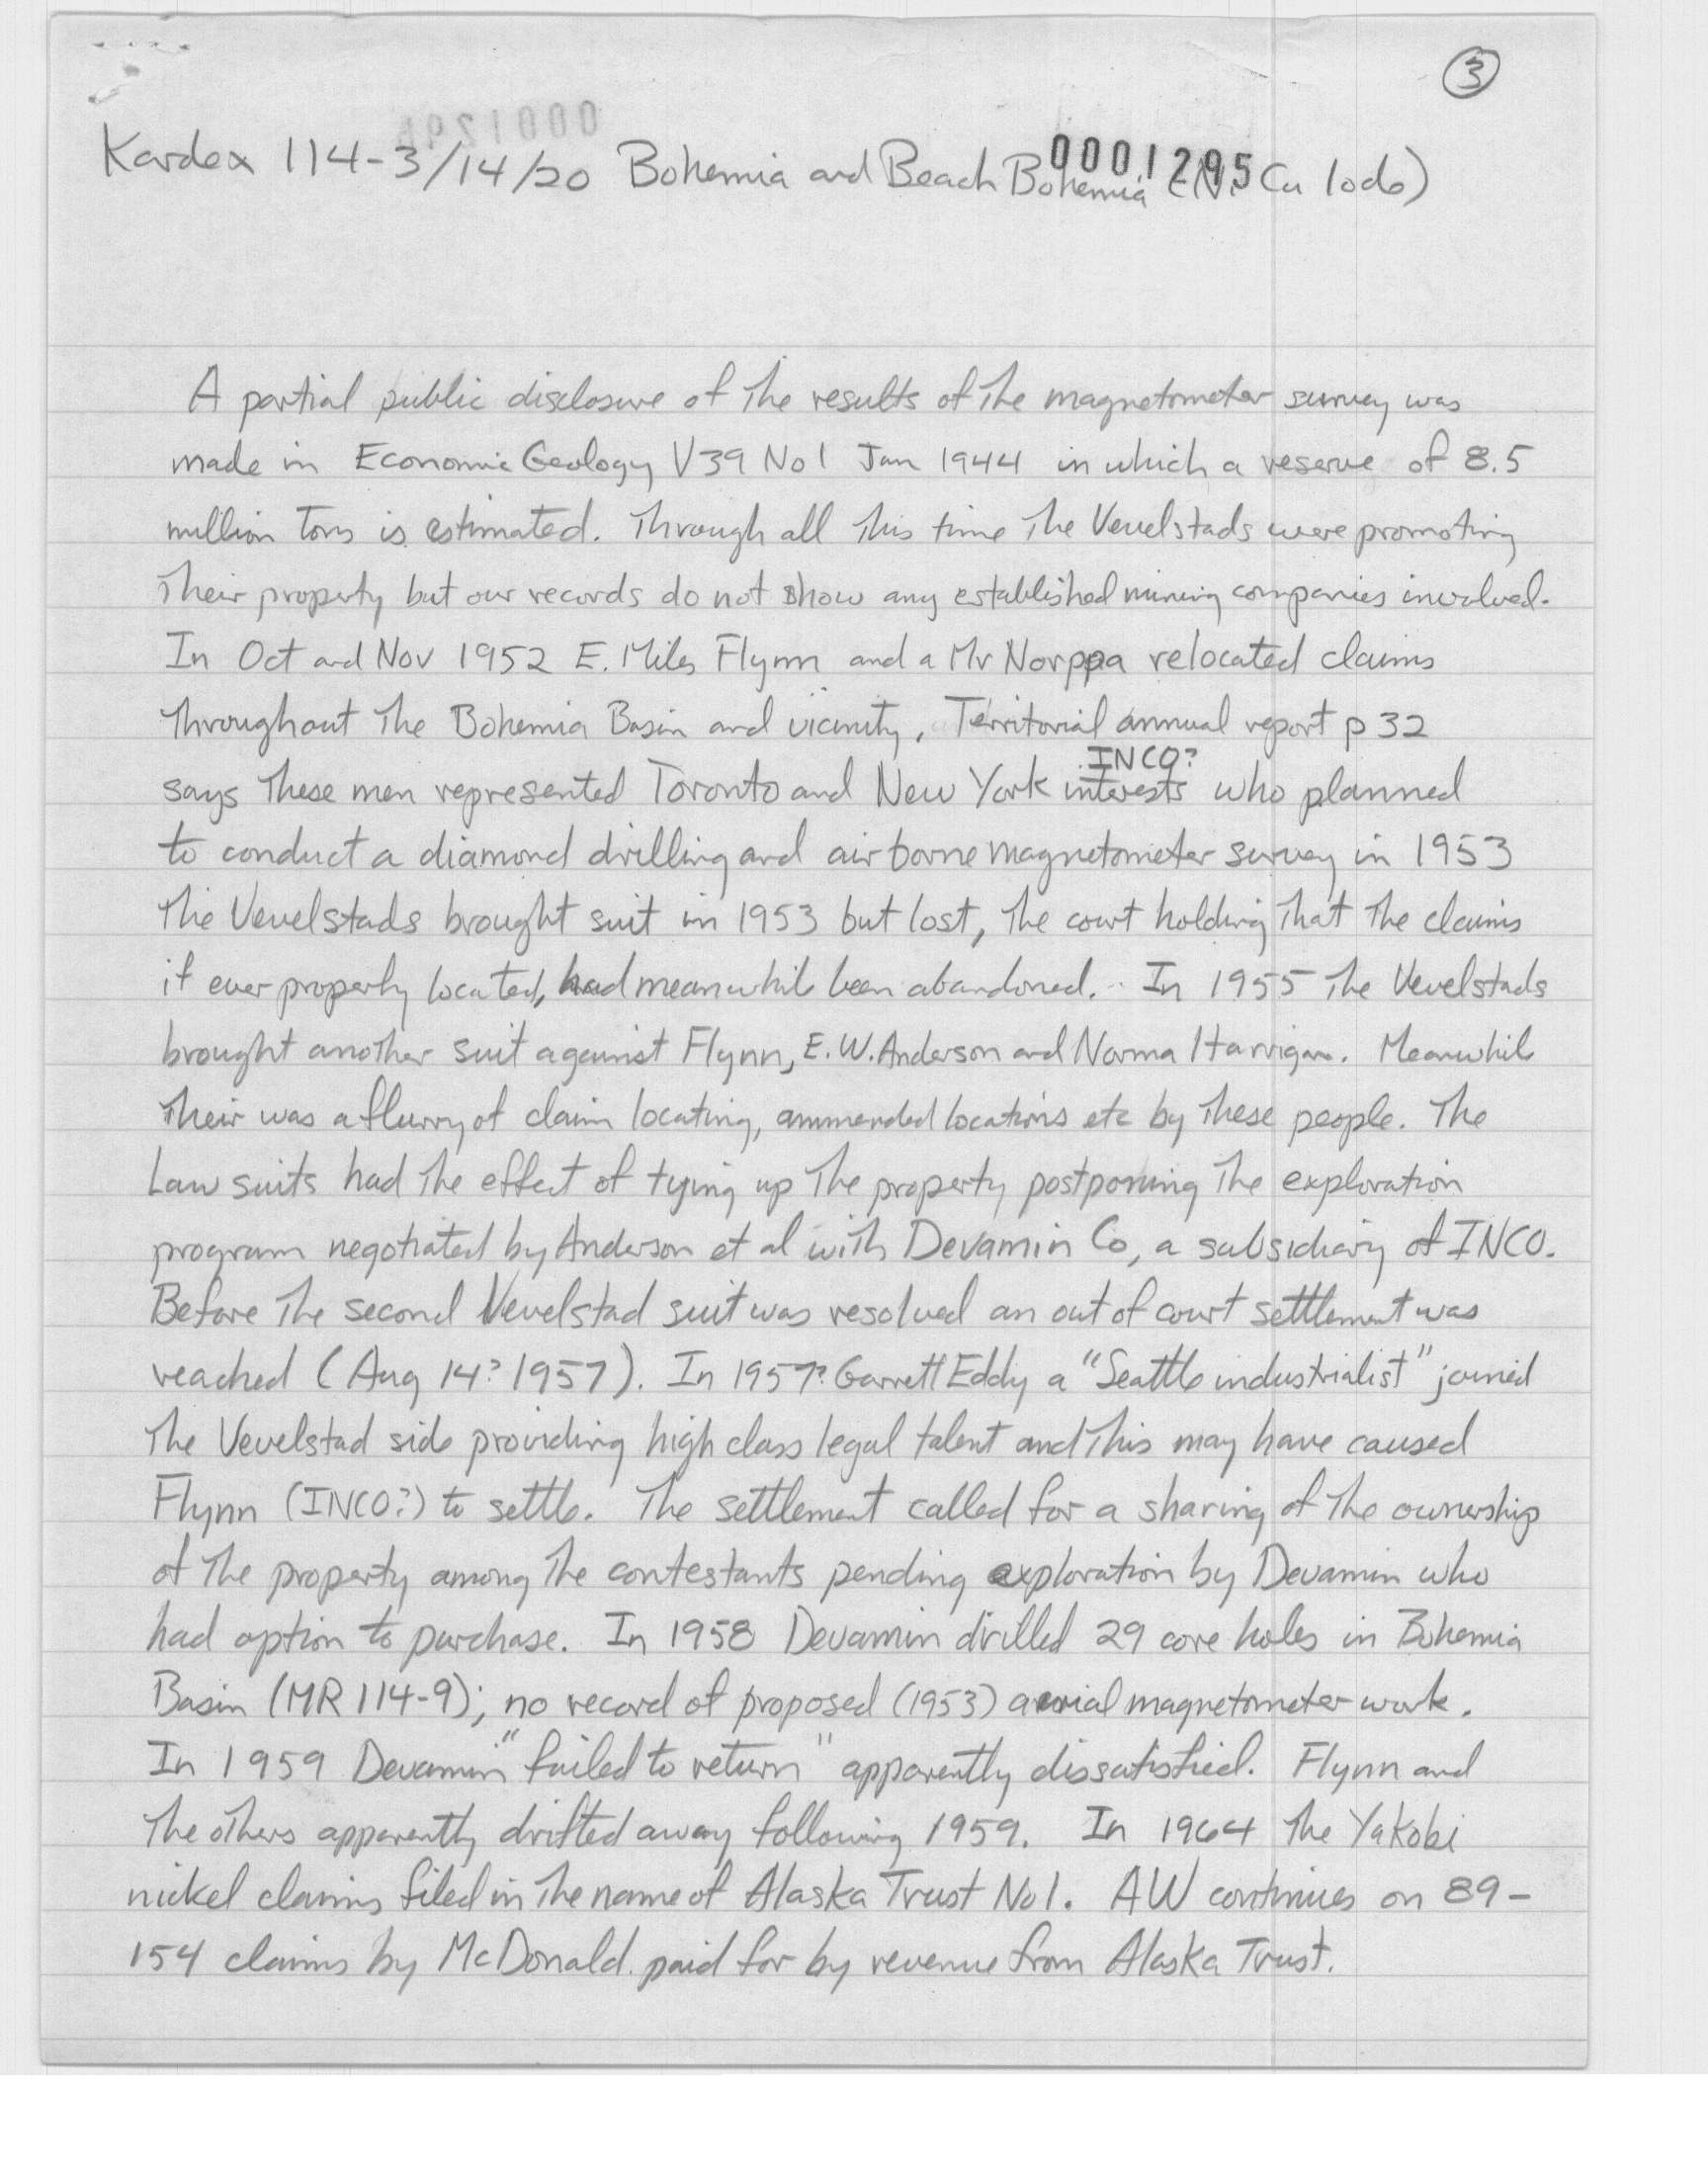 3
0001295
Kardex 114-3/14/20 Bohemia and Beach Bohemia (Ni Cu lode)
A partial public disclosure of the results of the magnetometer survey was
made in Economic Geology V39 No 1 Jan 1944 in which a reserve of 8.5
million tons is estimated. Through all this time the Vevelstads were promoting
their property but our records do not show any established mining companies involved.
In Oct and Nov 1952 E. Miles Flynn and a Mr Norppa relocated claims
throughout the Bohemia Basin and vicinity. Territorial annual report p 32
INCO?
says these men represented Toronto and New York interests who planned
to conduct a diamond drilling and airborne magnetometer survey in 1953
The Vevelstads brought suit in 1953 but lost, the court holding that the claims
if ever properly located, had meanwhile been abandoned. In 1955 the Vevelstads
brought another suit against Flynn, E. W. Anderson and Norma Harrigan. Meanwhile
their was a flurry of claim locating, ammended locations etc by these people. The
Law suits had the effect of tying up the property postponing the exploration
program negotiated by Anderson et al with Devamin Co, a subsidiary of INCO.
Before the second Vevelstad suit was resolved an out of court settlement was
reached (Aug 14? 1957). In 1957? Garrett Eddy a "Seattle industrialist" joined
the Vevelstad side providing high class legal talent and this may have caused
Flynn (INCO?) to settle. The settlement called for a sharing of the ownership
of the property among the contestants pending exploration by Devamin who
had option to purchase. In 1958 Devamin drilled 29 core holes in Bohemia
Basin (MR 114-9); no record of proposed (1953) aerial magnetometer work.
In 1959 Devamin "failed to return" apparently dissatisfied. Flynn and
the others apparently drifted away following 1959. In 1964 the Yakobi
nickel claims filed in the name of Alaska Trust No 1. AW continues on 89-
154 claims by McDonald paid for by revenue from Alaska Trust.